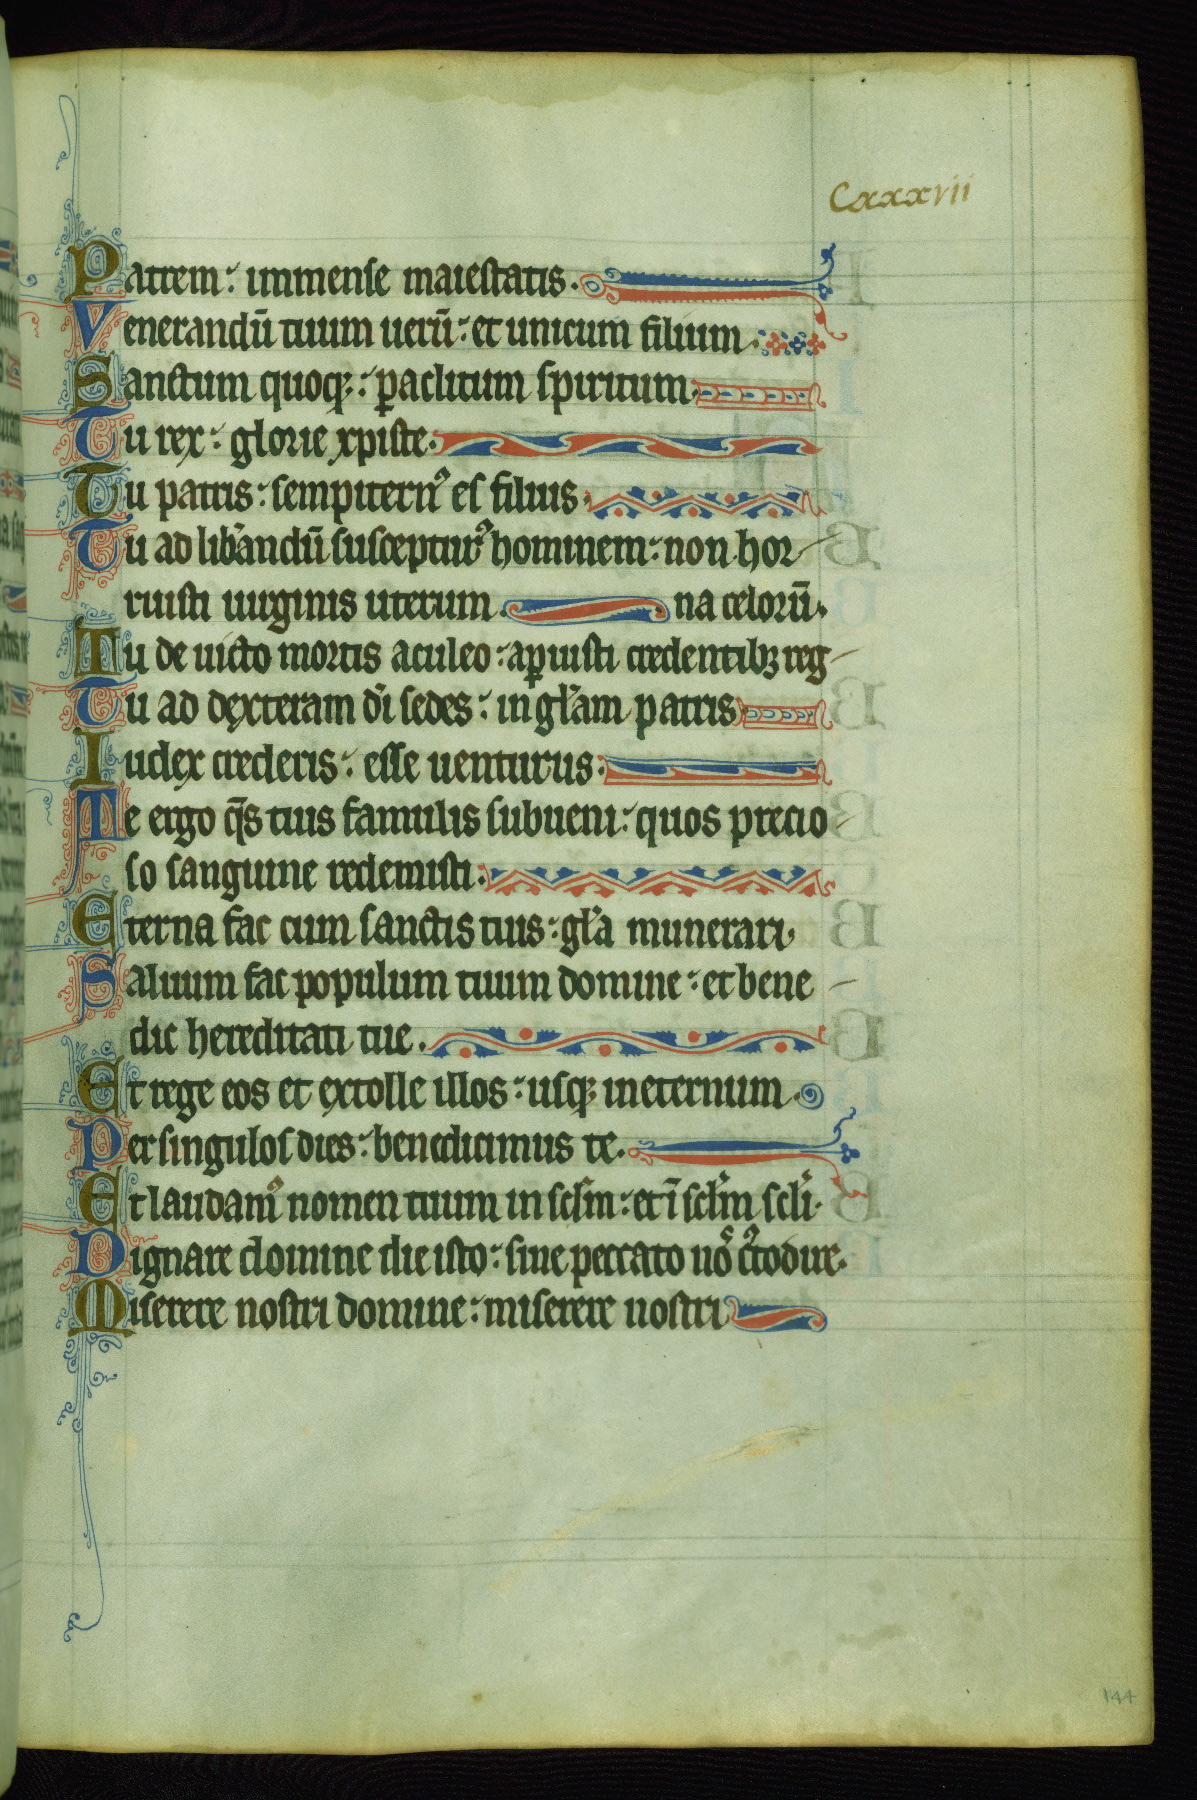 Cxxxvii
Patrem: immense maiestatis.
Venerandū tuum uerū: et unicum filium.
Sanctum quoqꝫ: ꝑaclitum spiritum.
Tu rex: glorie xpiste.
Tu patris: sempiternꝰ es filius.
Tu ad lib̾andū susceptur̾ hominem: non hor
ruisti uirginis uterum. na celorū.
Tu de uicto mortis aculeo: aꝑuisti credentibꝫ reg
Tu ad dexteram dī sedes: in gl̾am patris
Iudex crederis: esse uenturus.
Te ergo q̄s tuis famulis subueni: quos precio
so sanguine redemisti.
Eterna fac cum sanctis tuis: gl̾a munerari.
Saluum fac populum tuum domine: et bene
dic hereditati tue.
Et rege eos et extolle illos: usqꝫ in eternum.
Per singulos dies: benedicimus te.
Et laudamꝰ nomen tuum in sc̄lm: et ī sc̄lm sc̄li.
Dignare domine die isto: sine peccato nos c̾todire.
Miserere nostri domine: miserere nostri
144